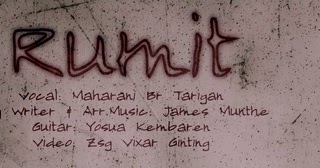 Rumit
Vocal: Maharani Br Tarigan
Writer & Arr.Music: James Munthe
Guitar: Yosua Kembaren
Video: Zsg Vixar Ginting